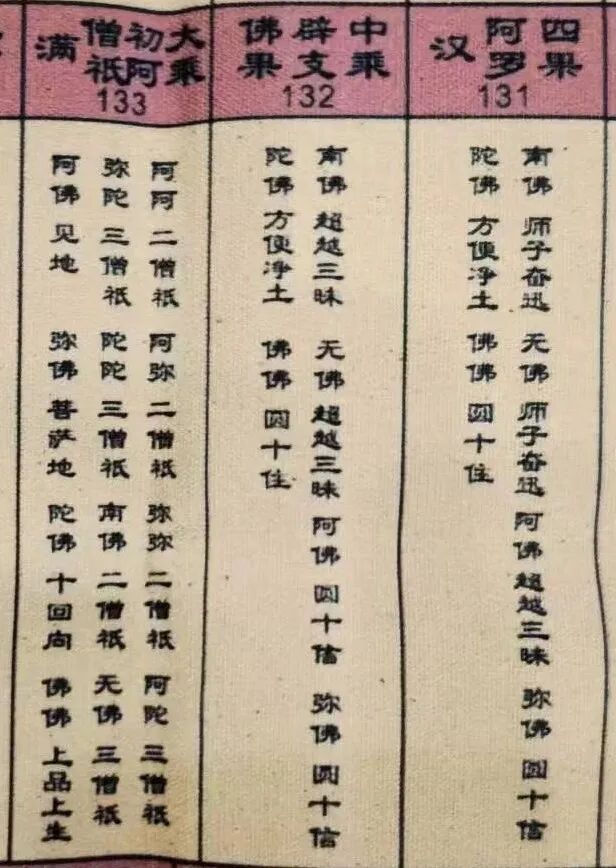 四果
阿罗
汉
131
南佛 师子奋迅 无佛 师子奋迅 阿佛 超越三昧 弥佛 圆十信
陀佛 方便净土 佛佛 圆十住
中乘
辟支
佛果
132
南佛 超越三昧 无佛 超越三昧 阿佛 圆十信 弥佛 圆十信
陀佛 方便净土 佛佛 圆十住
大乘
初阿
僧祇
满
133
阿阿 二僧祇 阿弥 二僧祇 弥弥 二僧祇 阿陀 三僧祇
弥陀 三僧祇 陀陀 三僧祇 南佛 二僧祇 无佛 三僧祇
阿佛 见地 弥佛 菩萨地 陀佛 十回向 佛佛 上品上生